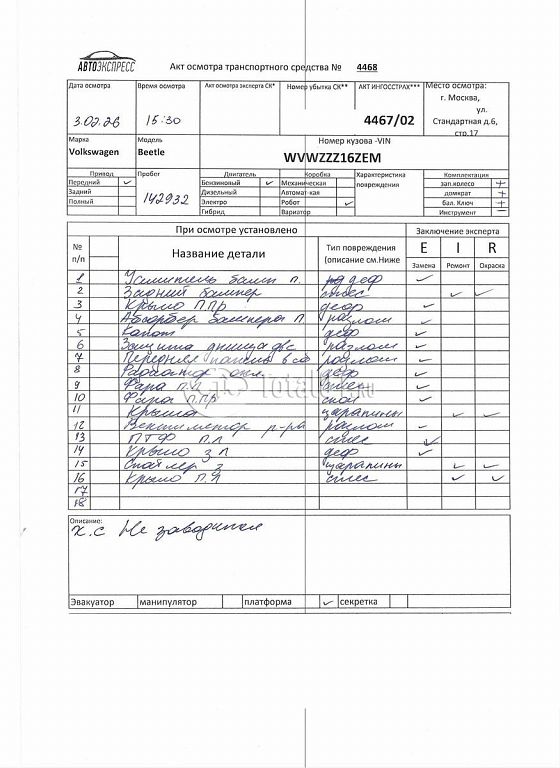 АВТОЭКСПРЕСС
Акт осмотра транспортного средства № 4468
Дата осмотра Время осмотра Акт осмотра эксперта СК* Номер убытка СК** АКТ ИНГОССТРАХ*** Место осмотра:
3.02.26 15:30 4467/02 г. Москва, ул. Стандартная д.6, стр.17
Марка Модель Номер кузова -VIN
Volkswagen Beetle WVWZZZ16ZEM
Привод Пробег Двигатель Коробка Характеристика повреждения Комплектация
Передний ✓ 142932 Бензиновый ✓ Механическая зап.колесо +
Задний Дизельный Автомат-кая домкрат +
Полный Электро Робот ✓ бал. Ключ +
Гибрид Вариатор Инструмент -
При осмотре установлено Заключение эксперта
№ п/п Название детали Тип повреждения (описание см.Ниже E I R
Замена Ремонт Окраска
1 Усилитель бамп п. деф ✓
2 Задний бампер ✓ ✓
3 Крыло ППР деф ✓
4 Абсорбер бампера П разлом ✓
5 Капот деф ✓
6 Защита днища двс разлом ✓
7 Передняя разлом ✓
8 деф ✓
9 Фара п.л ✓
10 Фара ппр ✓
11 Крыша царапины ✓ ✓
12 Вентилятор р-ра разлом ✓
13 ПТФ П.Л ✓
14 Крыло З П деф ✓
15 Спойлер З царапины ✓ ✓
16 Крыло П.Л ✓ ✓
17
18
Описание:
х.с Не заводится
Эвакуатор манипулятор платформа ✓ секретка